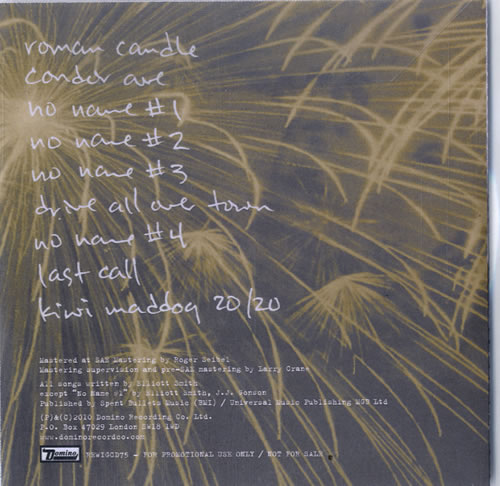 roman candle
condor ave
no name #1
no name #2
no name #3
drive all over town
no name #4
last call
kiwi maddog 20/20
Mastered at SAE Mastering by Roger Seibel
Mastering supervision and pre-SAE mastering by Larry Crane
All songs written by Elliott Smith
except "No Name #1" by Elliott Smith, J.J. Gonson
Published by Spent Bullets Music (BMI) / Universal Music Publishing MGB Ltd
(P)&(C)2010 Domino Recording Co. Ltd.
P.O. Box 47029 London SW18 1WD
www.dominorecordco.com
Domino REWIGCD75 - FOR PROMOTIONAL USE ONLY / NOT FOR SALE